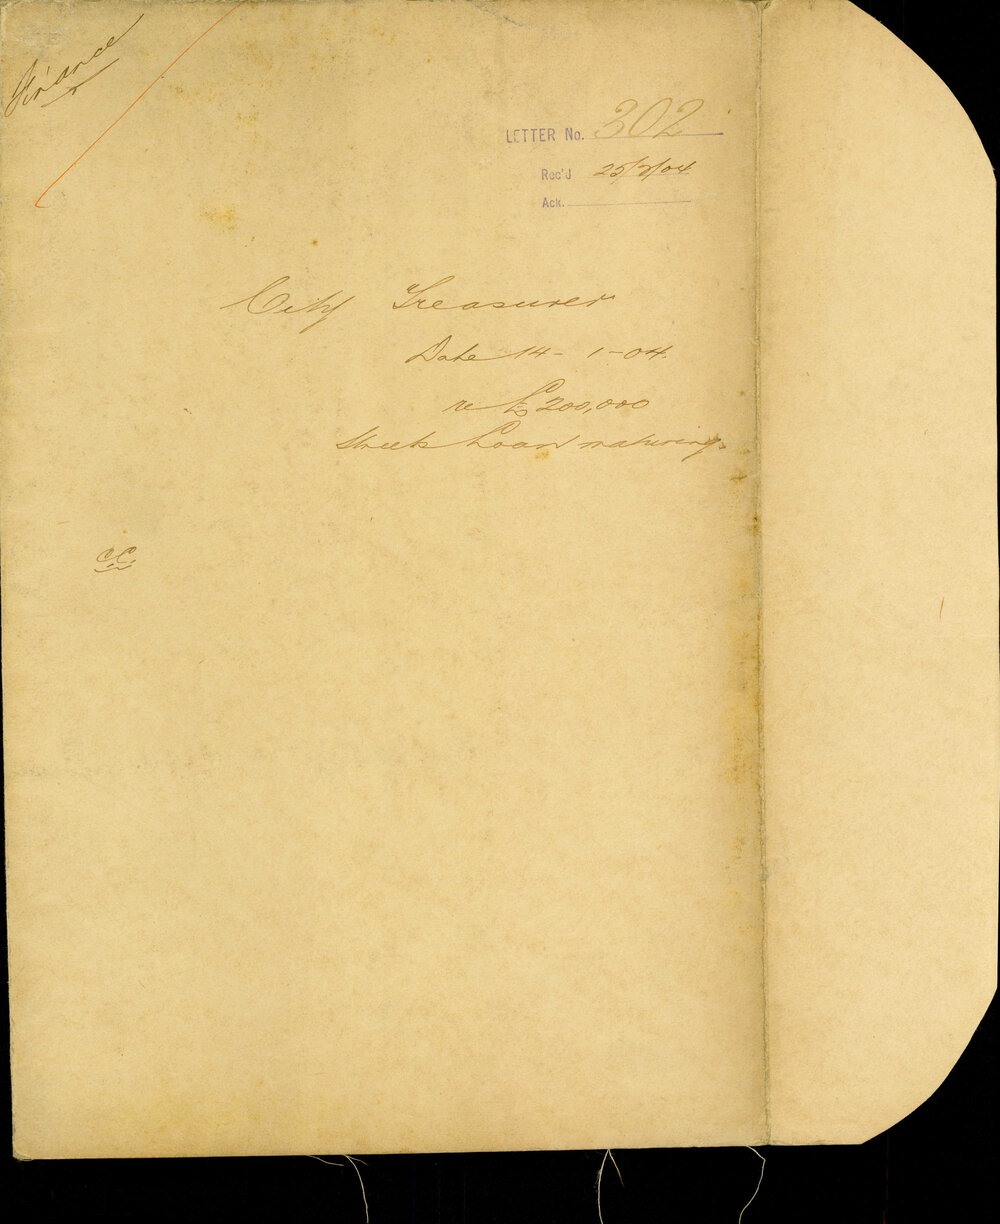 Finance
LETTER No. 302
Rec'd 25/2/04
Ack.
City Treasurer
Date 14-1-04
re £200,000
Streets Loan maturing
C.C.